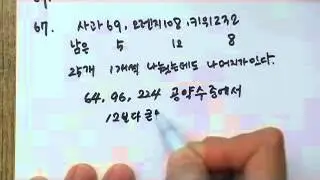 67. 사과 69, 오렌지 108, 키위 232
남음 5 12 8
25개 1개씩 나눴는데도 나머지가 있다.
64, 96, 224 공약수 중에서
12보다